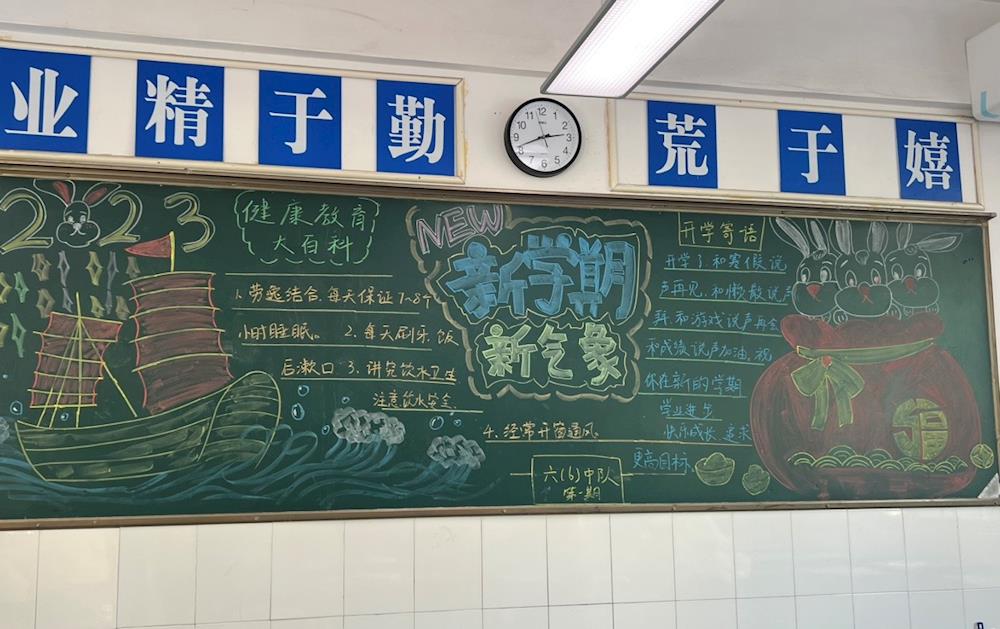 业精于勤
荒于嬉
12
1
2
3
4
5
6
7
8
9
10
11
2023
健康教育
大百科
1.劳逸结合,每天保证7~8个
小时睡眠。 2.每天刷牙,饭
后漱口 3.讲究饮水卫生
注意饮水安全
4.经常开窗通风
NEW
新学期
新气象
六(6)中队
第一期
开学寄语
开学了和寒假说
声再见,和懒散说声
拜,和游戏说声再会
和成绩说声加油,祝
你在新的学期
学业进步
快乐成长 追求
更高目标
福